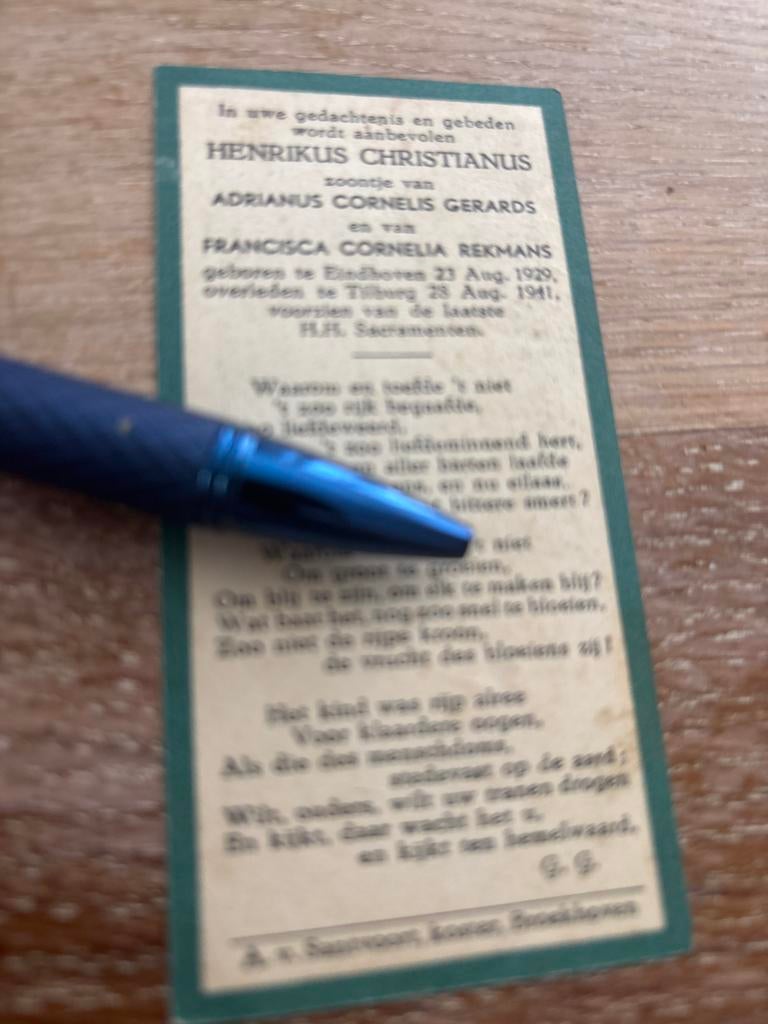 In uwe gedachtenis en gebeden
wordt aanbevolen
HENRIKUS CHRISTIANUS
zoontje van
ADRIANUS CORNELIS GERARDS
en van
FRANCISCA CORNELIA REKMANS
geboren te Eindhoven 23 Aug. 1929,
overleden te Tilburg 28 Aug. 1941,
voorzien van de laatste
H.H. Sacramenten.
Waarom en toefde 't niet
't zoo rijk begaafde,
liefdeweerd,
't zoo liefdeminnend hert,
aller harten laafde
en nu eilaas,
bittere smert?
Waarom 't niet
Om groot te groeien,
Om blij te zijn, om elk te maken blij?
Wat baat het, nog zoo snel te bloeien,
Zoo niet de rijpe kroon,
de vrucht des bloeiens zij!
Het kind was rijp alree
Voor klaardere oogen,
Als die des menschdoms,
stedevast op de aard;
Wilt, ouders, wilt uw tranen drogen
En kijkt, daar wacht het u,
en kijkt ten hemelwaard.
G. G.
A. v. Santvoort, koster, Broekhoven